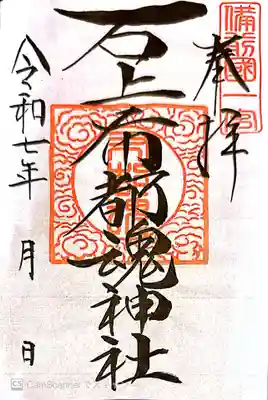 備前國一宮
奉拝
石上布都魂神社
令和七年 月 日
CS CamScanner でス